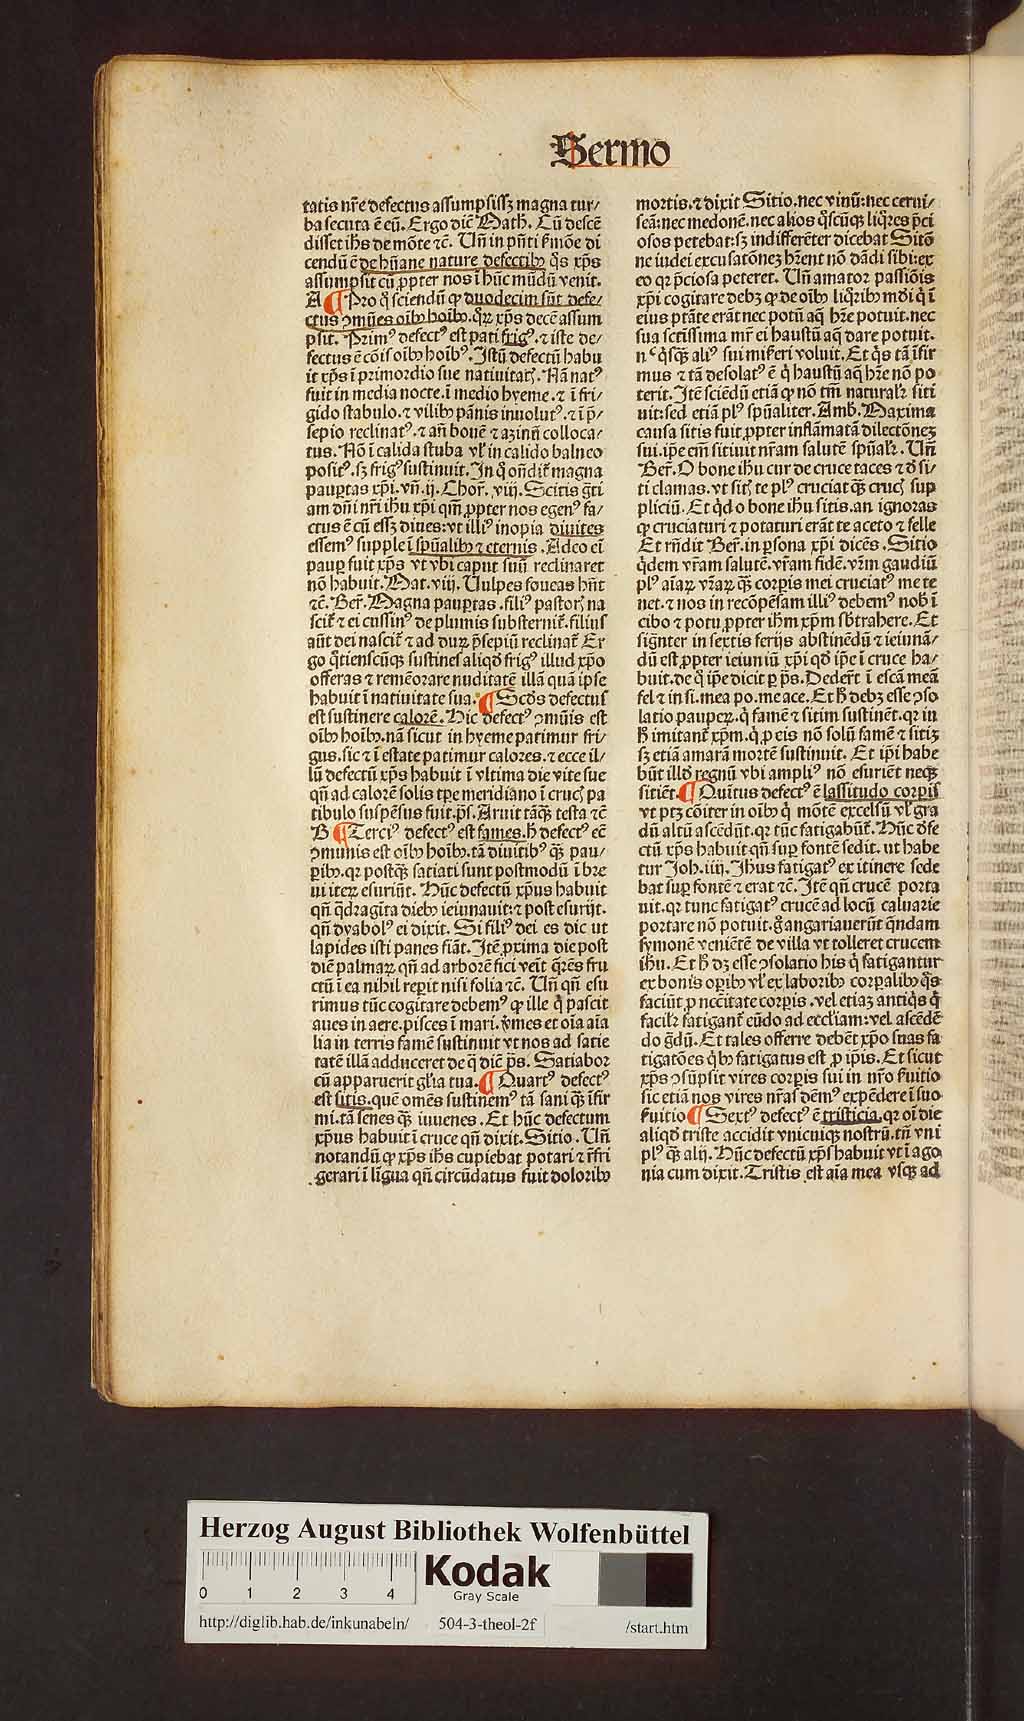 Sermo
tatis nr̄e defectus assumpsissꝫ magna tur⸗
ba secuta ē eū. Ergo dic̄ Math. Cū descē
disset ihs̄ de mōte ⁊c̄. Un̄ in pn̄ti s̓mōe di
cendū ē de hūane nature defectibꝰ q̇s xp̄s
assumpsit cū ꝓpter nos ī hūc mūdū venit.
A ¶ Pro q̊ sciendū ꝙ duodecim sūt defe⸗
ctus ꝯmūes oībꝰ hoībꝰ. q̊ꝝ xp̄s decē assum
psit. Primꝰ defectꝰ est pati frigꝰ. ⁊ iste de⸗
fectus ē cōis oībꝰ hoībꝰ. Istū defectū habu
it xp̄s ī primordio sue nativitatꝭ. Nā natꝰ
fuit in media nocte. ī medio hyeme. ⁊ ī fri⸗
gido stabulo. ⁊ vilibꝰ pānis inuolutꝰ. ⁊ ī p̄⸗
sepio reclinatꝰ. ⁊ an̄ bouē ⁊ azinū colloca⸗
tus. Nō ī calida stuba vl̓ in calido balneo
positꝰ. sꝫ frigꝰ sustinuit. In q̊ on̄dit̄ magna
paup̄tas xp̄i. vn̄. ij. Chor̄. viij. Scitis gr̄ti
am dn̄i nr̄i ihu xp̄i qm̄ ꝓpter nos egenꝰ fa⸗
ctus ē cū essꝫ diues: vt illiꝰ inopia diuites
essemꝰ supple ī spūalibꝰ ⁊ eternis. Adeo eī
paup̄ fuit xp̄s vt vbi caput suū reclinaret
nō habuit. Mat. viij. Uulpes foueas hn̄t
⁊c̄. Ber̄. Magna paup̄tas. filiꝰ pastorꝭ na
scit̄ ⁊ ei cussinꝰ de plumis substernit̄. filius
aūt dei nascit̄ ⁊ ad duꝝ p̄sepiū reclinat̄ Er
go q̊tienscūqꝫ sustines aliqd̓ frigꝰ illud xp̄o
offeras ⁊ remēorare nuditatē illā quā ip̄se
habuit ī nativitate sua. ¶ Scd̓s defectus
est sustinere calorē. Hic defectꝰ ꝯmūis est
oībꝰ hoībꝰ. nā sicut in hyeme patimur fri⸗
gus. sic ⁊ ī estate patimur calores. ⁊ ecce il⸗
lū defectū xp̄s habuit ī vltima die vite sue
qn̄ ad calorē solis tp̄e meridiano ī crucꝭ pa
tibulo suspēsus fuit. ps̄. Aruit tāqꝫ testa ⁊c̄
B ¶ Terciꝰ defectꝰ est fames. h̓ defectꝰ eē
ꝯmunis est oībꝰ hoībꝰ. tā diuitibꝰ qꝫ pau⸗
p̄ibꝰ. qꝛ postqꝫ satiati sunt postmodū ī bre
ui iteꝝ esuriūt. Hūc defectū xp̄us habuit
qn̄ q̊dragīta diebꝰ ieiunauit: ⁊ post esurijt.
qn̄ dyabolꝰ ei dixit. Si filiꝰ dei es dic ut
lapides isti panes fiāt. Itē ꝓxima die post
diē palmaꝝ qn̄ ad arborē fici veīt q̄rēs fru
ctū ī ea nihil rep̄it nisi folia ⁊c̄. Un̄ qn̄ esu
rimus tūc cogitare debemꝰ ꝙ ille q̇ pascit
aues in aere. pisces ī mari. v̓mes et oīa aīa
lia in terris famē sustinuit vt nos ad satie
tatē illā adduceret de q̊ dic̄ ps̄. Satiabor
cū apparuerit gl̓ia tua. ¶ Quartꝰ defectꝰ
est sitis. quē omēs sustinemꝰ tā sani qꝫ īfir
mi. tā senes qꝫ iuuenes. Et hūc defectum
xp̄us habuit ī cruce qn̄ dixit. Sitio. Un̄
notandū ꝙ xp̄s ihs̄ cupiebat potari ⁊ rēfri
gerari ī līgua qn̄ circūdatus fuit doloribꝰ
mortis. ⁊ dixit Sitio. nec vinū: nec cerui⸗
seā: nec medonē. nec alios q̊scūqꝫ liq̊res p̄ci
osos petebat: sꝫ indifferēter dicebat Sitō
ne iudei excusatōnez hr̄ent nō dādi sibi: ex
eo qꝛ p̄ciosa peteret. Un̄ amator passiōis
xp̄i cogitare debꝫ ꝙ de oībꝰ liq̊ribꝰ mdi q̇ ī
eius ptāte erāt nec potū aq̄ hr̄e potuit. nec
sua sctīssima mr̄ ei haustū aq̄ dare potuit.
nec q̇sqꝫ aliꝰ sui mis̓eri voluit. Et q̇s tā īfir
mus ⁊ tā desolatꝰ ē q̇ haustū aq̄ hr̄e nō po
terit. Itē sciēdū etiā ꝙ nō tm̄ naturalr̄ siti
uit: sed etiā plꝰ spūaliter. Amb. Maxima
causa sitis fuit ꝓpter inflāmatā dilectōnez
sui. ip̄e em̄ sitiuit nr̄am salutē spūalr̄. Un̄
Ber̄. O bone ihu cur de cruce taces ⁊ d̓ si⸗
ti clamas. vt sitꝭ te plꝰ cruciat qꝫ crucꝭ sup
pliciū. Et q̇d o bone ihu sitis. an ignoras
ꝙ cruciaturi ⁊ potaturi erāt te aceto ⁊ felle
Et rn̄dit Ber̄. in p̄sona xp̄i dicēs. Sitio
q̇dem vr̄am salutē. vr̄am fidē. vr̄m gaudiū
plꝰ aīaꝝ vr̄aꝝ qꝫ corp̄is mei cruciatꝰ me te
net. ⁊ nos in recōpēsam illiꝰ debemꝰ nob̓ ī
cibo ⁊ potu ꝓpter ihm̄ xp̄m sb̓trahere. Et
signter in sextis ferijs abstinēdū ⁊ ieiunā⸗
dū est ꝓpter ieiuniū xp̄i qd̓ ip̄e ī cruce ha⸗
buit. de q̊ ip̄e dicit p̄ ps̄. Dedert̄ ī escā meā
fel ⁊ in si. mea po. me ace. Et h̓ debꝫ esse ꝯso
latio paupeꝝ. q̇ famē ⁊ sitim sustinēt. qꝛ in
h̓ imitant̄ xp̄m. q̇ ꝓ eis nō solū famē ⁊ sitiꝫ
sꝫ etiā amarā mortē sustinuit. Et ip̄i habe
būt illd̓ regnū vbi ampliꝰ nō esuriēt neqꝫ
sitiēt. ¶ Quītus defectꝰ ē lassitudo corp̄is
vt ptꝫ cōiter in oībꝰ q̇ mōtē excelsū vl̓ gra
dū altū ascēdūt. qꝛ tūc fatigabūt̄. Hūc d̓fe
ctū xp̄s habuit qn̄ sup̄ fontē sedit. ut habe
tur Joh. iiij. Ihus fatigatꝰ ex itinere sede
bat sup̄ fontē ⁊ erat ⁊c̄. Itē qn̄ crucē porta
uit. qꝛ tunc fatigatꝰ crucē ad locū caluarie
portare nō potuit. g̊ angariauerūt q̄ndam
symonē veniētē de villa vt tolleret crucem
ihu. Et h̓ dꝫ esse ꝯsolatio his q̇ fatigantur
ex bonis op̄ibꝰ vl̓ ex laboribꝰ corp̄alibꝰ q̊s
faciūt ꝓ nccītate corp̄is. vel etiaꝫ antiq̇s q̇
facilr̄ fatigant̄ eūdo ad eccl̓iam: vel ascēdē
do g̊dū. Et tales offerre debēt xp̄o suas fa
tigatōes q̇bꝰ fatigatus est ꝓ ip̄is. Et sicut
xp̄s ꝯsūpsit vires corp̄is sui in nr̄o s̓uitio
sic etiā nos vires nr̄as dem̄ꝰ expēdere ī suo
s̓uitio ¶ Sextꝰ defectꝰ ē tristicia. qꝛ oī die
aliqd̓ triste accidit vnicuiqꝫ nostrū. tn̄ vni
plꝰ qꝫ alij. Hūc defectū xp̄s habuit vt ī ago
nia cum dixit. Tristis est aīa mea vsqꝫ ad
Herzog August Bibliothek Wolfenbüttel
0 1 2 3 4
Kodak
Gray Scale
http://diglib.hab.de/inkunabeln/ 504-3-theol-2f /start.htm